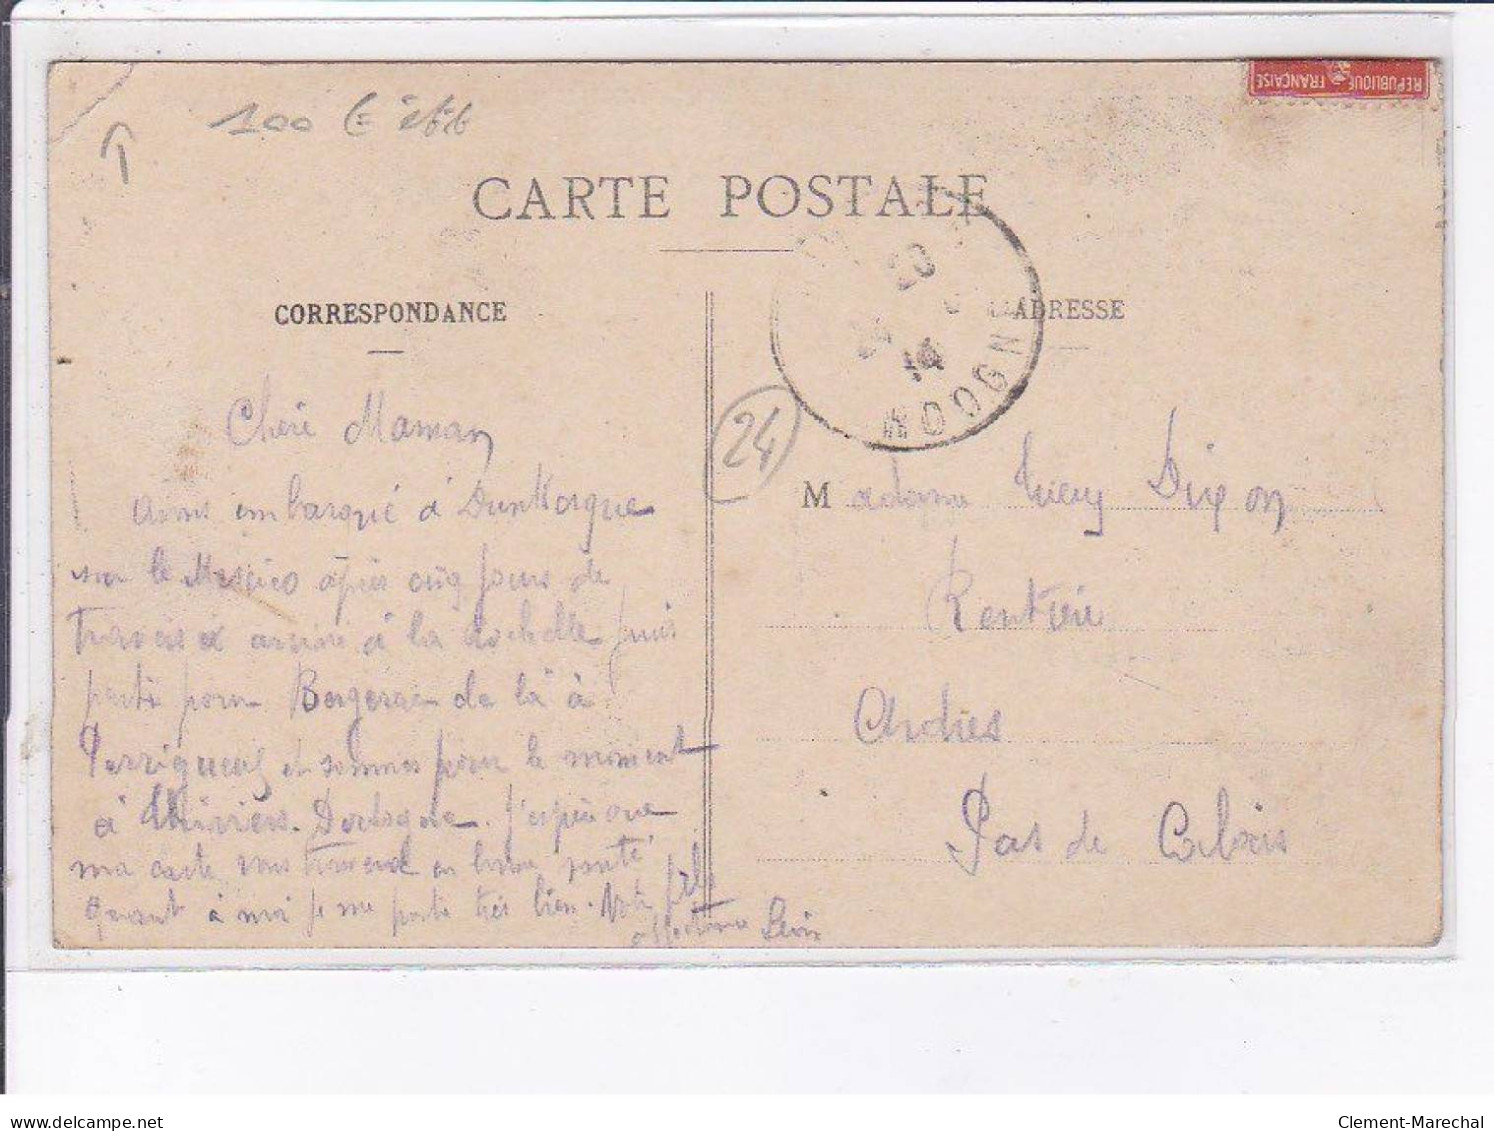 REPUBLIQUE FRANÇAISE
100 € été
T
CARTE POSTALE
20
14
DORDOGN
CORRESPONDANCE
ADRESSE
24
Chère Maman
embarqué à Dunkerque
sur le Mexico après cinq jours de
arrivé à la Rochelle puis
parti pour Bergerac de là à
Perrigueux et sommes pour le moment
à Thiviers. Dordogne. J'espère que
ma carte vous trouvent en bonne santé
Quant à moi je me porte très bien. Votre fils
affectionné
Madame Dixon
Rentière
Ardres
Pas de Calais
delcampe.net
Clement-Marechal